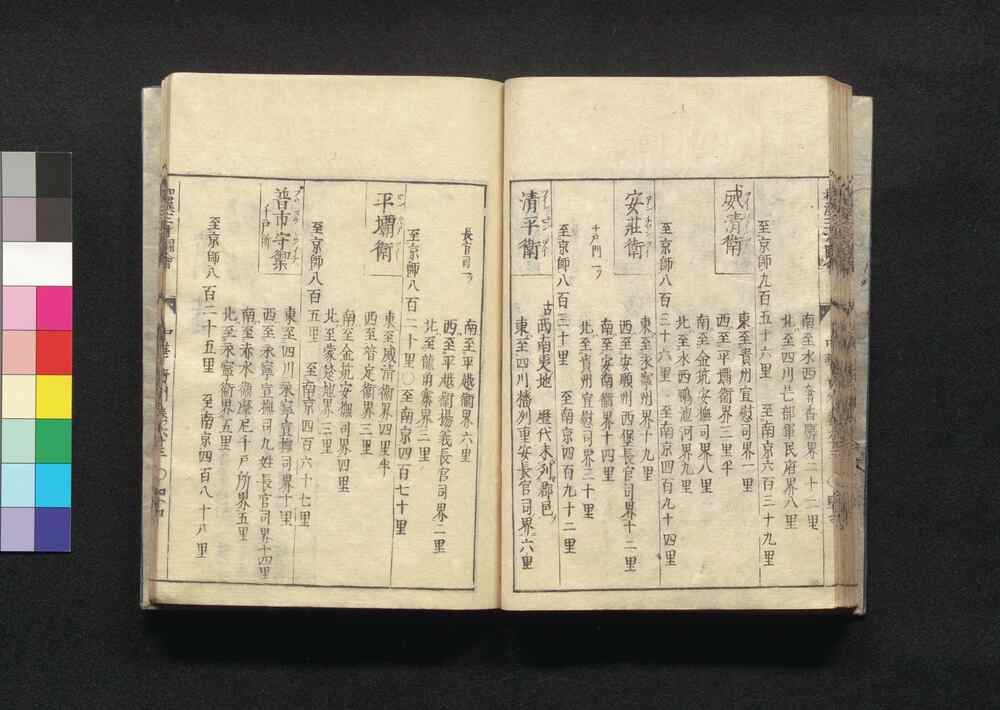 南至水西奢香驛界二十二里
北至四川芒部軍民府界八里
至京師九百五十六里　至南京六百三十九里
威清衛
東至貴州宣慰司界一里
西至平壩衛界三里半
南至金筑安撫司界八里
北至水西鴨池河界九里
至京師八百三十六里　至南京四百九十四里
安莊衛
東至永寧州界十九里
西至安順州西堡長官司界十二里
南至安南衛界十四里
北至貴州宣慰司界三十里
至京師八百三十里　至南京四百九十二里
清平衛
古西南夷地　歴代未列郡邑
東至四川播列重安長官司界六里
長官司一ツ
南至平越衛界六里
西至平越衛楊義長官司界二里
北至龍甫寨界三里
至京師八百二十里〇至南京四百七十里
平壩衛
東至威清衛界四里半
西至普定衛界三里
南至金筑安撫司界四里
北至蒙楚地界三里
至京師八百五里　至南京四百六十七里
普市守禦
千戸所
東至四川永寧宣撫司界十里
西至永寧宣撫司九姓長官司界十四里
南至赤水衛摩尼千戸所界五里
北至永寧衛界五里
至京師八百二十五里　至南京四百八十戸里